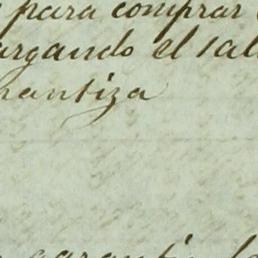 para comprar
argando el sal
rantiza
garantía